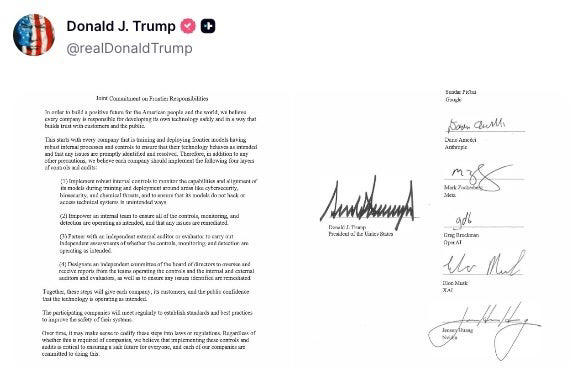 Donald J. Trump
@realDonaldTrump
Joint Commitment on Frontier Responsibilities
In order to build a positive future for the American people and the world, we believe
every company is responsible for developing its own technology safely and in a way that
builds trust with customers and the public.
This starts with every company that is training and deploying frontier models having
robust internal processes and controls to ensure that their technology behaves as intended
and that any issues are promptly identified and resolved. Therefore, in addition to any
other precautions, we believe each company should implement the following four layers
of controls and audits:
(1) Implement robust internal controls to monitor the capabilities and alignment of
its models during training and deployment around areas like cybersecurity,
biosecurity, and chemical threats, and to ensure that its models do not hack or
access technical systems in unintended ways
(2) Empower an internal team to ensure all of the controls, monitoring, and
detection are operating as intended, and that any issues are remediated.
(3) Partner with an independent external auditor or evaluator to carry out
independent assessments of whether the controls, monitoring and detection are
operating as intended.
(4) Designate an independent committee of the board of directors to oversee and
receive reports from the teams operating the controls and the internal and external
auditors and evaluators, as well as to ensure any issues identified are remediated.
Together, these steps will give each company, its customers, and the public confidence
that the technology is operating as intended.
The participating companies will meet regularly to establish standards and best practices
to improve the safety of their systems.
Over time, it may make sense to codify these steps into laws or regulations. Regardless of
whether this is required of companies, we believe that implementing these controls and
audits is critical to ensuring a safe future for everyone, and each of our companies are
committed to doing this.
Donald J. Trump
President of the United States
Sundar Pichai
Google
Dario Amodei
Anthropic
Mark Zuckerberg
Meta
gdb
Greg Brockman
OpenAI
Elon Musk
Elon Musk
XAI
Jensen Huang
Nvidia